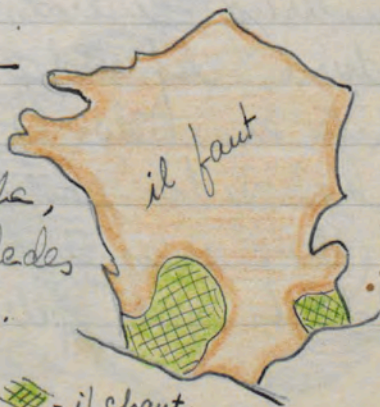 il faut
ha,
lades
.
- il chaut